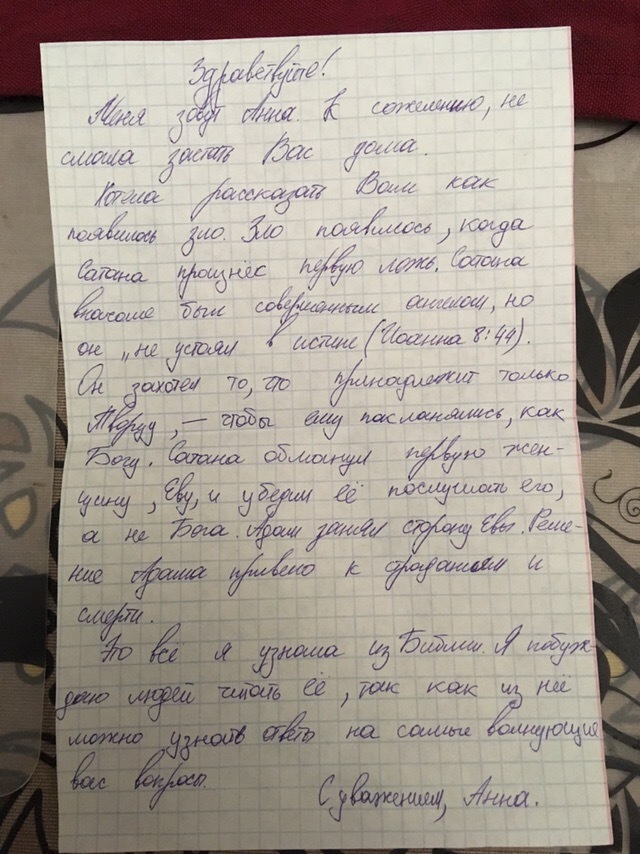 Здравствуйте!
Меня зовут Анна. К сожелению, не
смогла застать Вас дома.
Хотела рассказать Вам как
появилось зло. Зло появилось, когда
Сатана произнёс первую ложь. Сатана
вначале был совершенным ангелом, но
он „не устоял в истине (Иоанна 8:44).
Он захотел то, что принадлежит только
Творцу, – чтобы ему покланялись, как
Богу. Сатана обманул первую жен-
щину, Еву, и убедил её послушать его,
а не Бога. Адам занял сторону Евы. Реше-
ние Адама привело к страданием и
смерти.
Это всё я узнала из Библии. Я побуж-
даю людей читать её, так как из неё
можно узнать ответы на самые волнующие
вас вопросы.
С уважением, Анна.